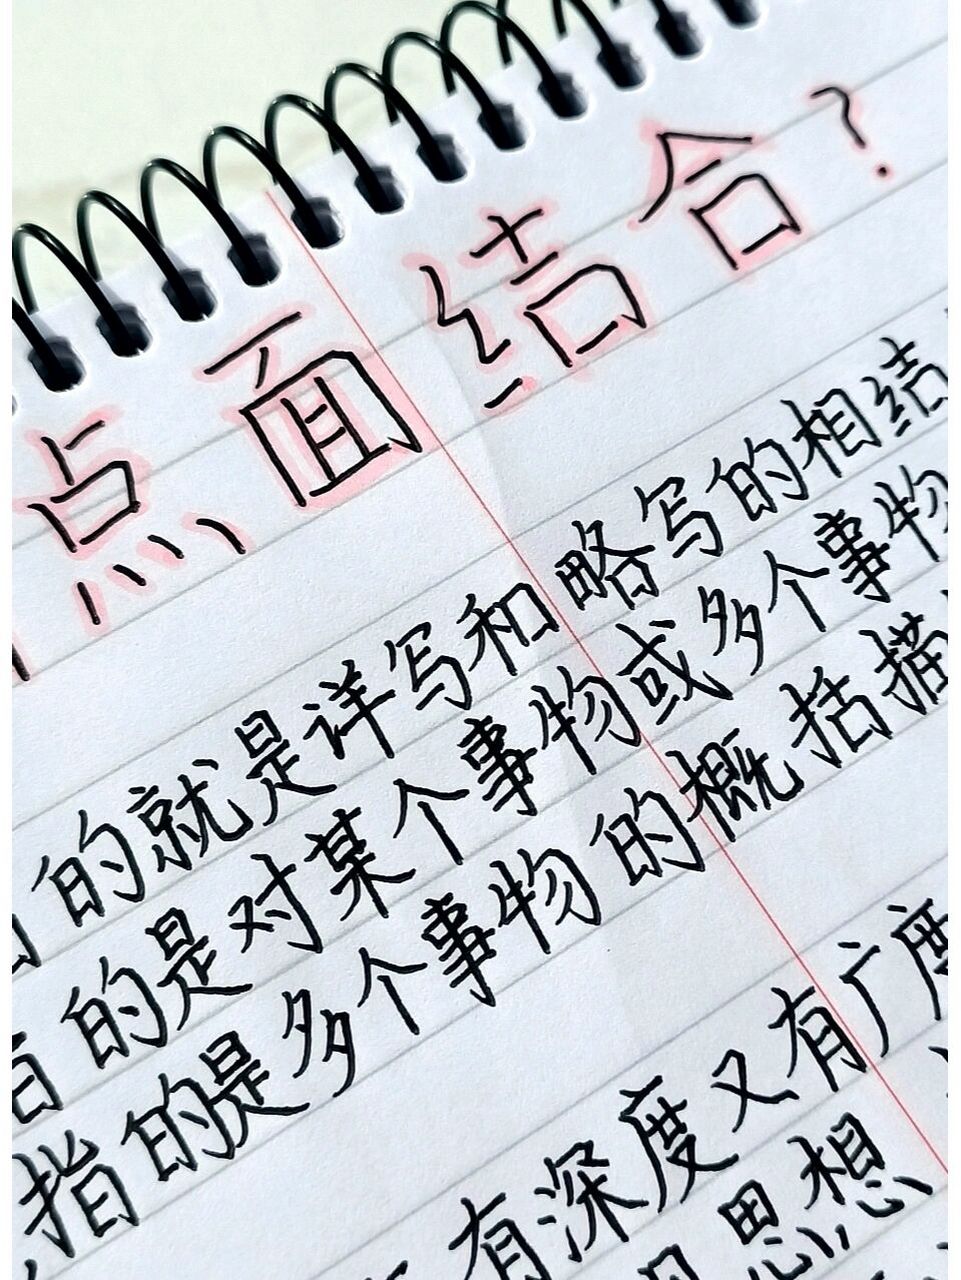 点面结合?
的就是详写和略写的相结
的是对某个事物或多个事物
指的是多个事物的概括描
有深度又有广度
思想